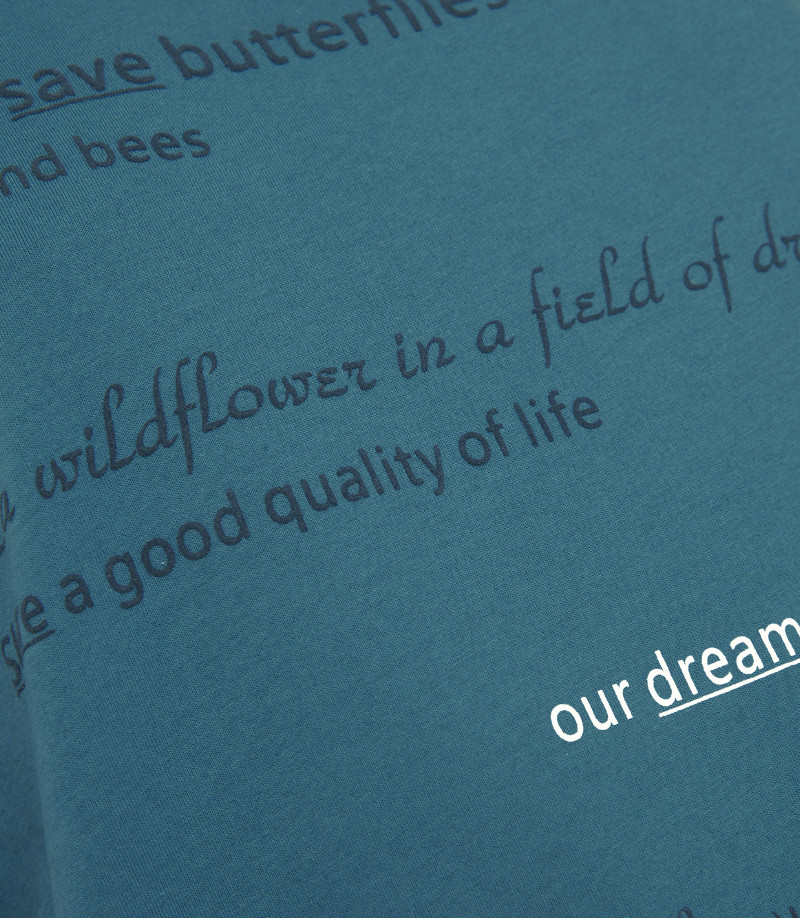 save butterflies
nd bees
a wildflower in a field of
save a good quality of life
our dream